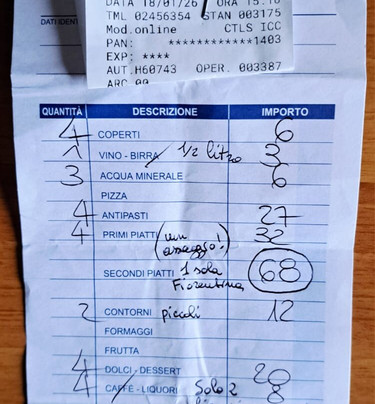 DATA 18/01/26 ORA 15:10
TML 02456354 STAN 003175
Mod.online CTLS ICC
PAN: ************1403
EXP: ****
AUT.H60743 OPER. 003387
ARC 00
DATI IDENT
QUANTITÀ DESCRIZIONE IMPORTO
4 COPERTI 6
1 VINO - BIRRA 1/2 litro 3
3 ACQUA MINERALE 6
PIZZA
4 ANTIPASTI 27
4 PRIMI PIATTI (un assaggio!) 32
SECONDI PIATTI 1 sola Fiorentina 68
2 CONTORNI piccoli 12
FORMAGGI
FRUTTA
4 DOLCI - DESSERT 20
4 CAFFÈ - LIQUORI Solo 2 8